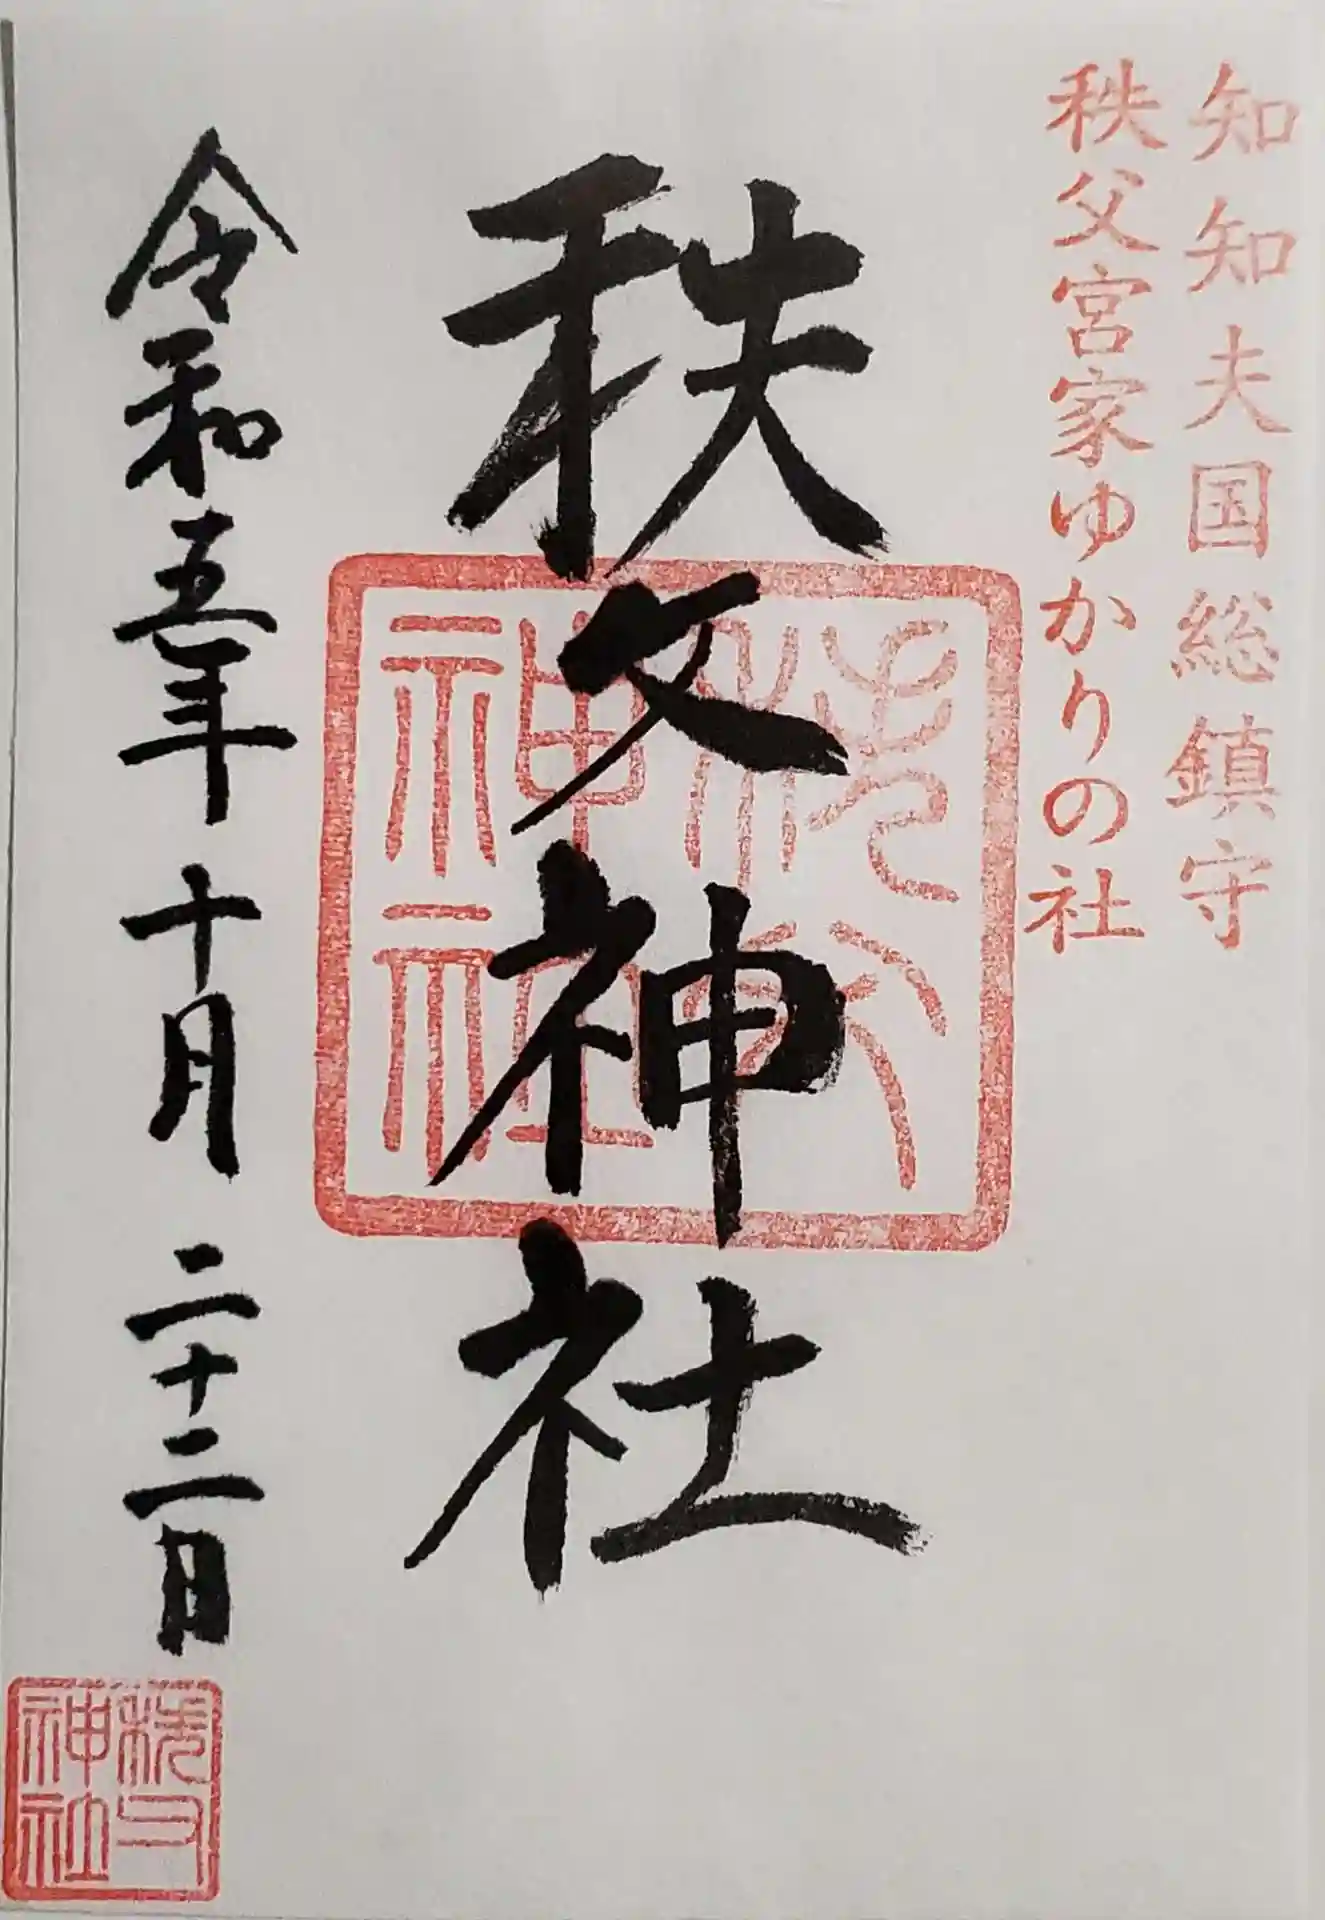 知知夫国総鎮守
秩父宮家ゆかりの社
秩父神社
秩父神社
令和五年十月二十二日
秩父神社